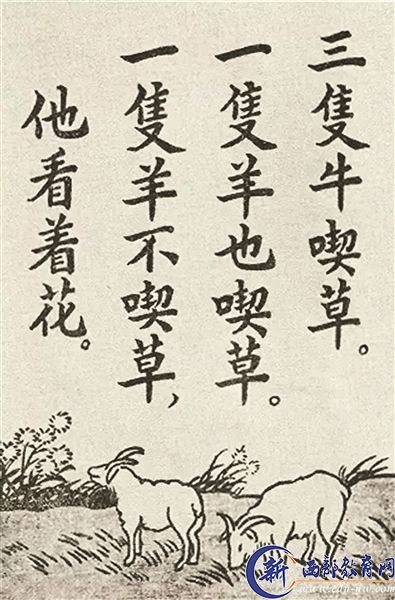 三隻牛喫草。
一隻羊也喫草。
一隻羊不喫草，
他看着花。
新 西部教育网
www.edn-nw.com